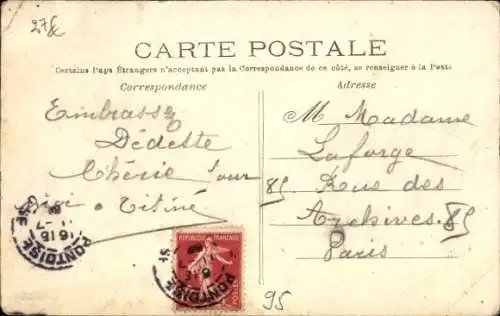 CARTE POSTALE
Certains Pays Étrangers n'acceptant pas la Correspondance de ce côté, se renseigner à la Poste
Correspondance
Adresse
Embrassez
Dédette
Chérie pour
Titine
M Madame
Laforge
85 Rue des
Archives 85
Paris
PONTOISE
16 15
RÉPUBLIQUE FRANÇAISE
95